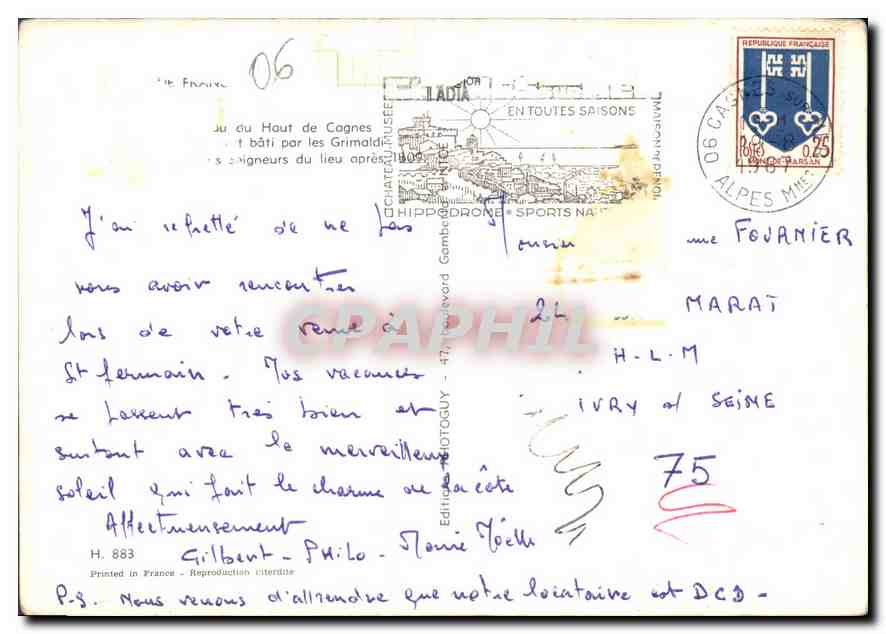 06
DE FRANCE
au du Haut de Cagnes
t bâti par les Grimaldi
s Seigneurs du lieu après 1309
CHATEAU-MUSÉE
EN TOUTES SAISONS
HIPPODROME * SPORTS NA
MAISON DE RENOI
06 CAGNES-SUR
1967
ALPES Mmes
REPUBLIQUE FRANÇAISE
POSTES 0,25
MONT-DE-MARSAN
J'ai regretté de ne pas
vous avoir rencontrés
lors de votre venue à
St Germain - Nos vacances
se passent très bien et
surtout avec le merveilleux
soleil qui fait le charme de la côte
Affectueusement
Gilbert - PHILO - Marie Noëlle
P.S. Nous venons d'apprendre que notre locataire est DCD -
H. 883
Printed in France - Reproduction interdite
Editions PHOTOGUY - 47, boulevard Gambetta - NICE
Monsieur me FOURNIER
MARAT
H-L-M
IVRY s/ SEINE
75
CPAPHIL